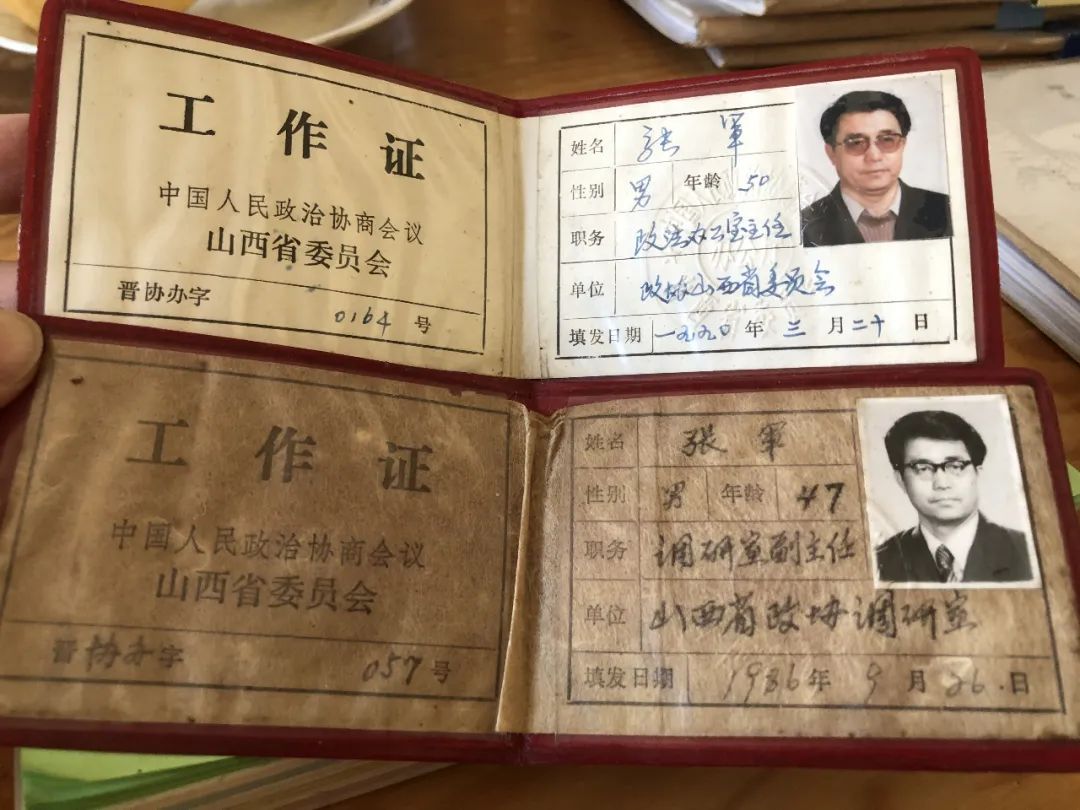 工作证
中国人民政治协商会议
山西省委员会
晋协办字
0164 号
姓名 张军
性别 男 年龄 50
职务 政法办公室主任
单位 政协山西省委员会
填发日期 一九九〇年三月二十日
工作证
中国人民政治协商会议
山西省委员会
晋协办字
057 号
姓名 张军
性别 男 年龄 47
职务 调研室副主任
单位 山西省政协调研室
填发日期 1986年9月26日